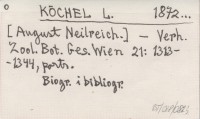 KÖCHEL L. 1872...
[August Neilreich.] — Verh.
Zool. Bot. Ges. Wien 21: 1313-
-1344, portr.
Biogr. i bibliogr.